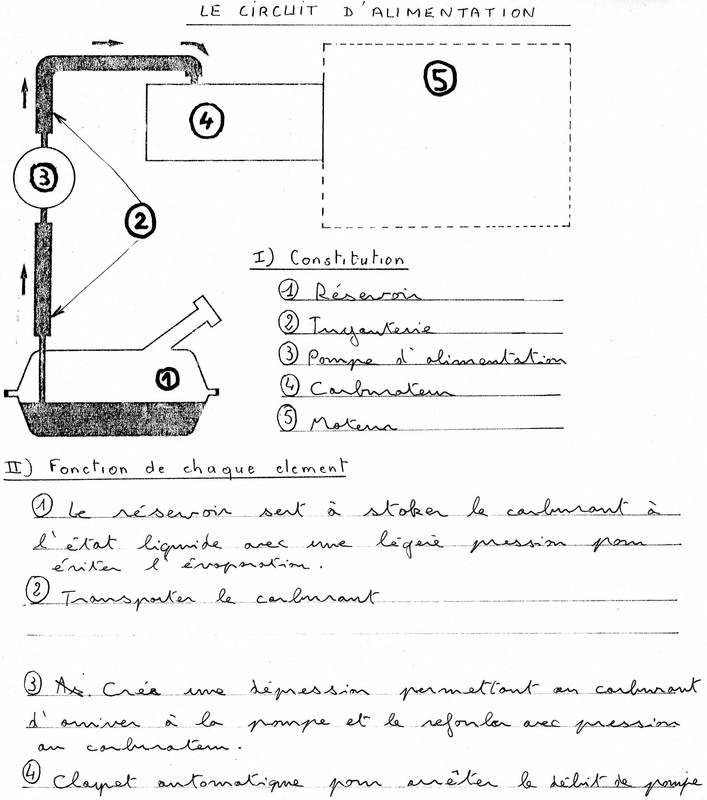 LE CIRCUIT D'ALIMENTATION
5
4
3
2
1
I) Constitution
1 Réservoir
2 Tuyauterie
3 Pompe d'alimentation
4 Carburateur
5 Moteur
II) Fonction de chaque element
1 Le réservoir sert à stoker le carburant à
l'état liquide avec une légère pression pour
éviter l'évaporation.
2 Transporter le carburant
3 Crée une dépression permettant au carburant
d'arriver à la pompe et le refouler avec pression
au carburateur.
4 Clapet automatique pour arrêter le débit de pompe